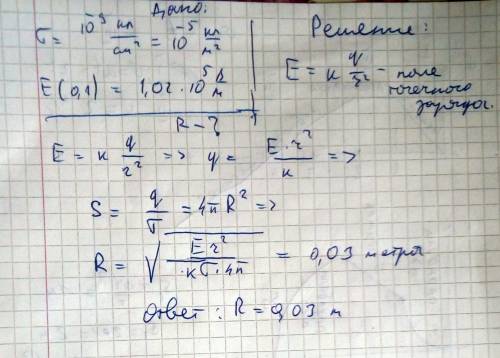 Дано:
σ = 10⁻⁹ кл/см² = 10⁻⁵ кл/м²
E(0,1) = 1,02 · 10⁵ В/м
R - ?
Решение:
E = к q/r² - поле
точечного
заряда.
E = к q/r² => q = E·r²/к =>
S = q/σ = 4π R² =>
R = √(Er²/(·кσ·4π)) = 0,03 метра
Ответ: R = 0,03 м